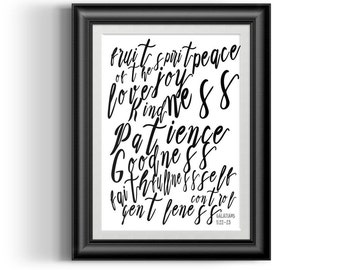 fruit spirit peace
of the joy
love
kindness
Patience
Goodness
faithfullness self
gentleness control
GALATIANS
5:22-23